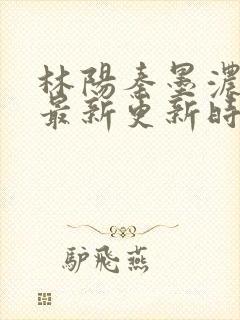 林陽秦墨濃
最新更新時
驢飛燕